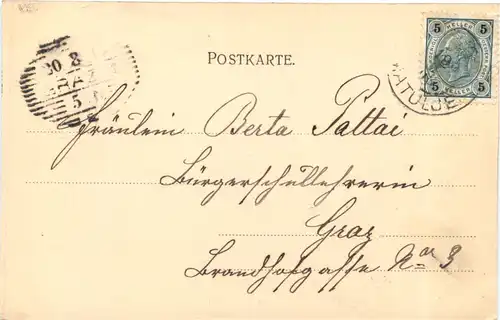 POSTKARTE.
5 HELLER 5
5 HELLER 5
20 8
GRAZ
5
MATULJE
Fräulein Berta Pattai
Bürgerschullehrerin
Graz
Brandhofgasse No 3